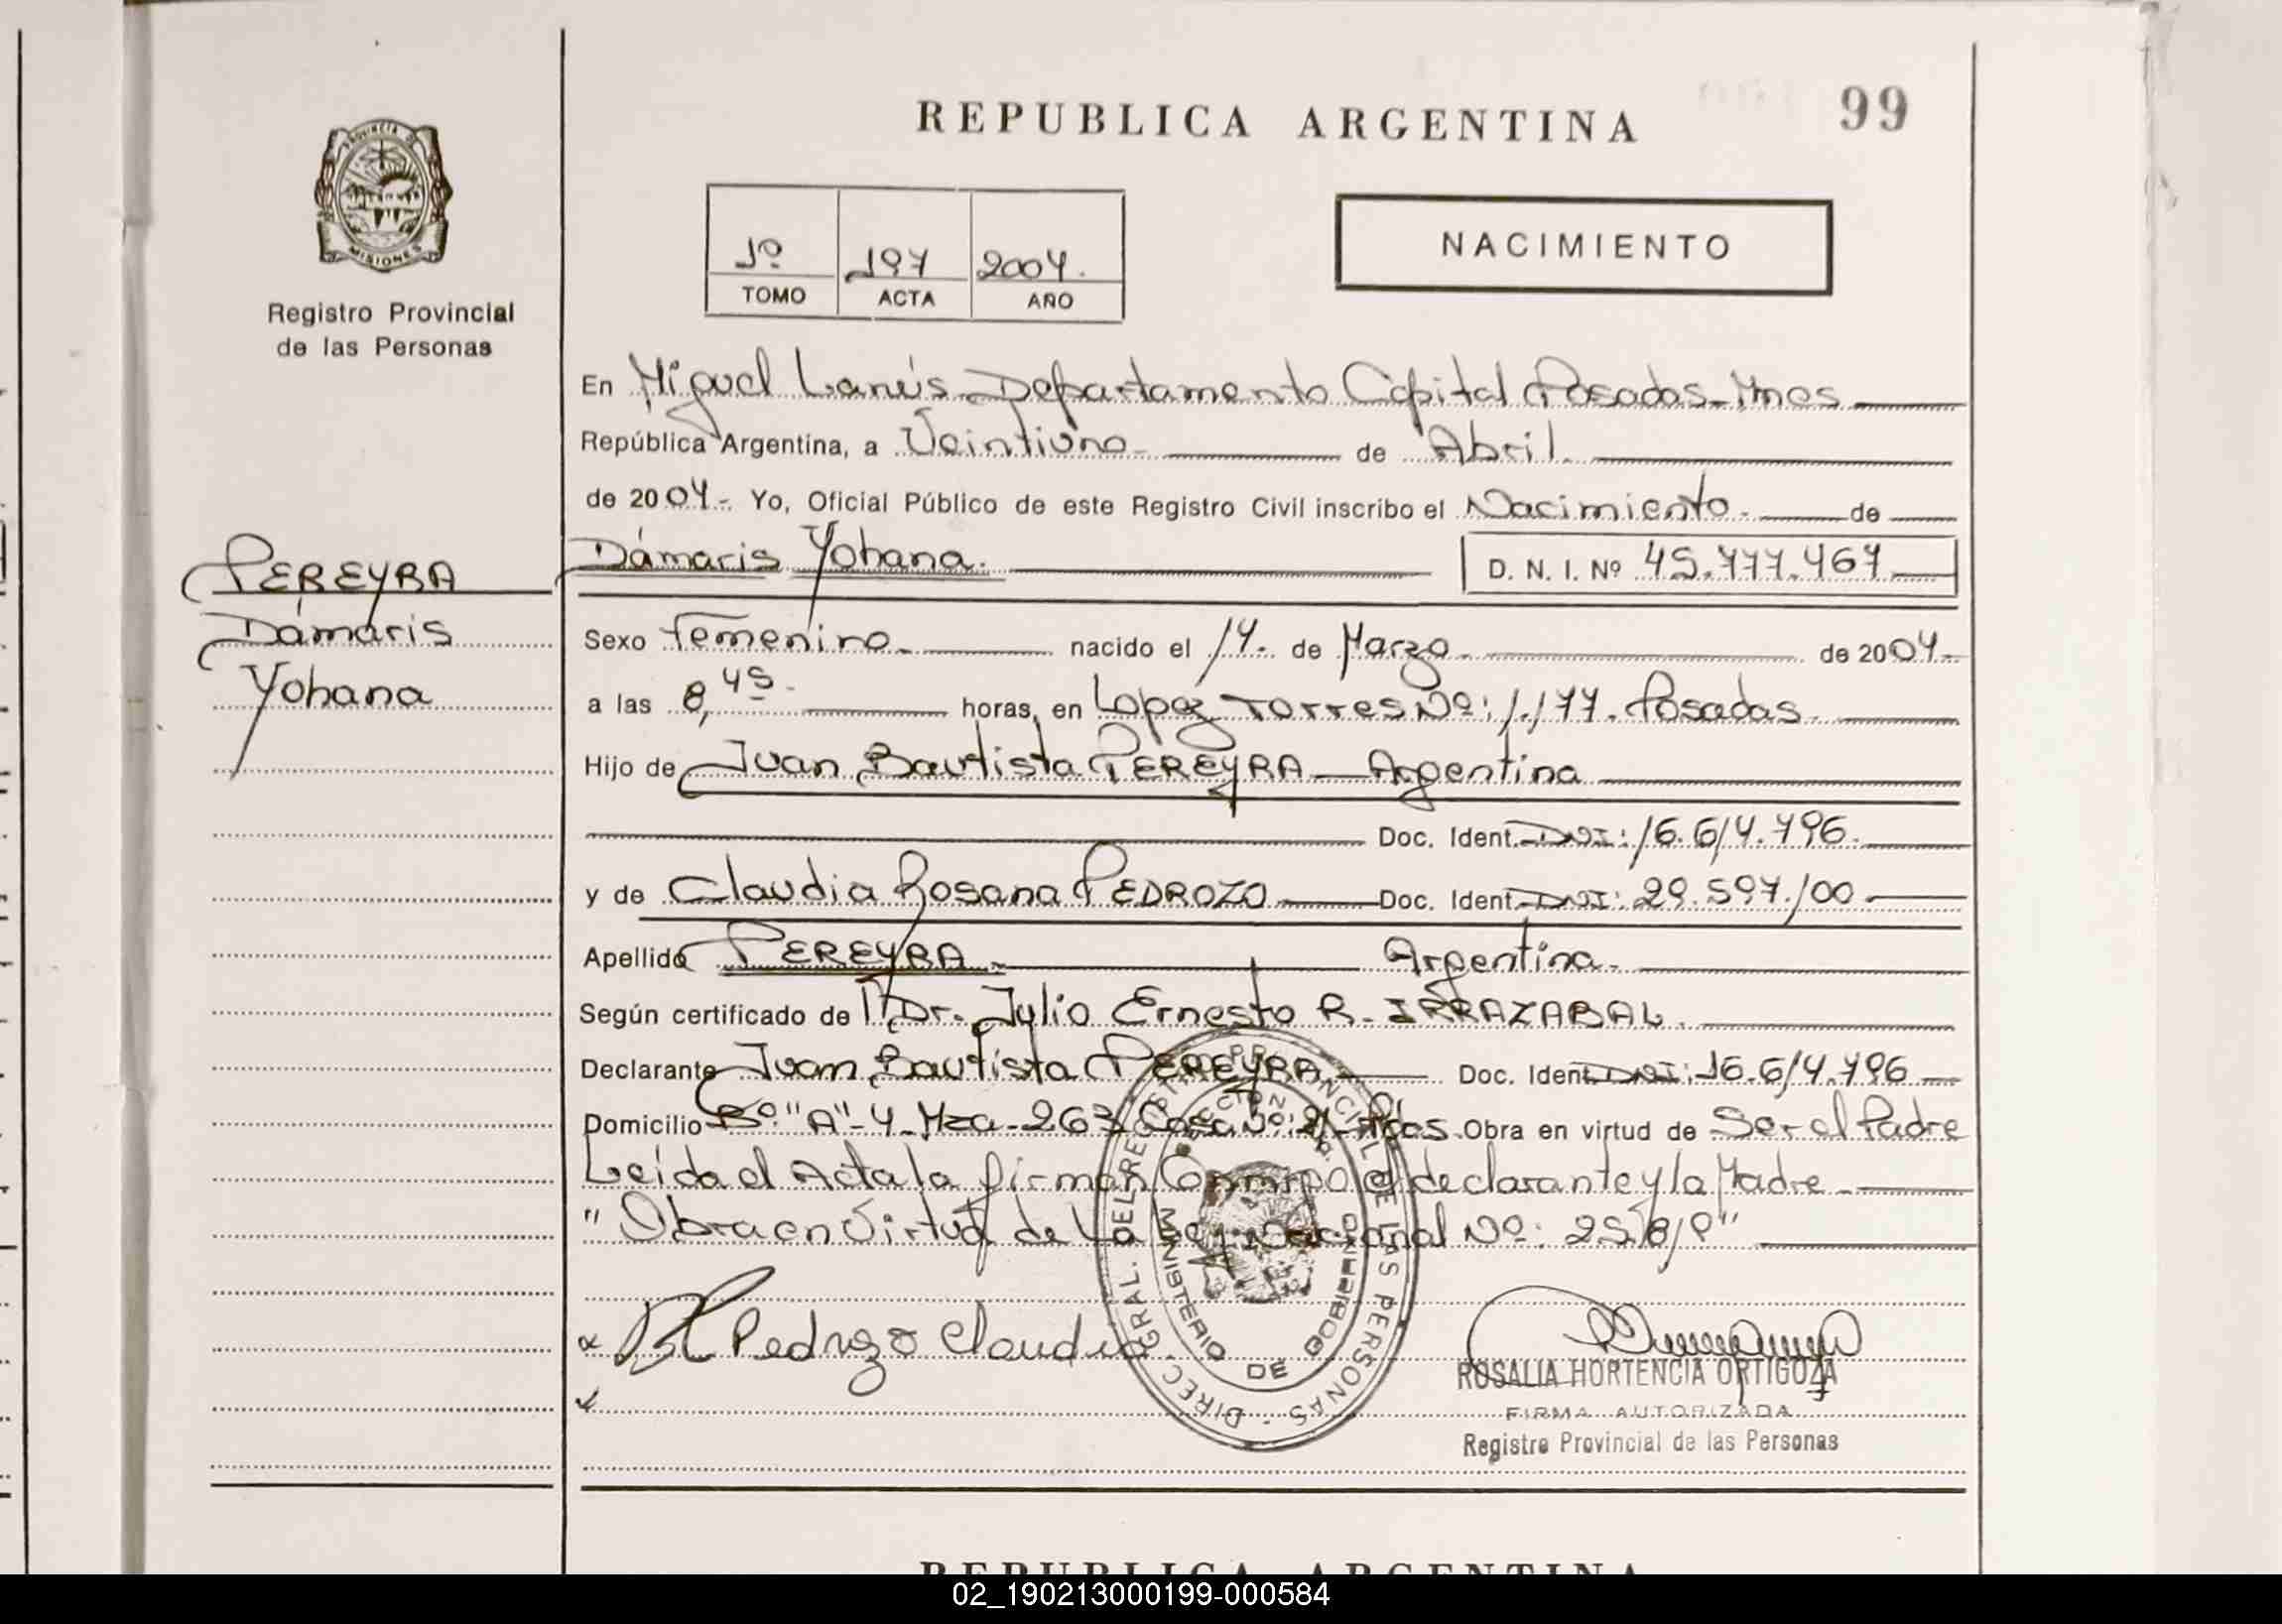 REPUBLICA ARGENTINA
99
PROVINCIA DE
MISIONES
Registro Provincial
de las Personas
1º 197 2004.
TOMO ACTA AÑO
NACIMIENTO
En Miguel Lanús Departamento Capital Posadas-Mnes
República Argentina, a Veintiuno de Abril.
de 2004.- Yo, Oficial Público de este Registro Civil inscribo el Nacimiento. de
PEREYRA
Dámaris
Yohana
Dámaris Yohana. D. N. I. Nº 45.777.467
Sexo Femenino. nacido el 14. de Marzo. de 2004.
a las 8,45. horas, en Lopez Torres Nº: 1.177. Posadas.
Hijo de Juan Bautista PEREYRA Argentina
Doc. Ident. DNI: 16.614.796.
y de Claudia Rosana PEDROZO Doc. Ident. DNI: 29.597.100
Apellido PEREYRA Argentina.
Según certificado de Dr. Julio Ernesto R. IRRAZABAL.
Declarante Juan Bautista PEREYRA Doc. Ident. DNI: 16.614.796
Domicilio Bº "A"-4-Mza-263 Casa Nº: Pdas Obra en virtud de Ser el Padre
Leída el Acta la firman Conmigo el declarante y la Madre
"Obra en Virtud de La Ley Nacional Nº: 25.819"
Pedrozo Claudia
DIREC. GRAL. DEL REGISTRO PROVINCIAL DE LAS PERSONAS
MINISTERIO DE GOBIERNO
ROSALIA HORTENCIA ORTIGOZA
FIRMA AUTORIZADA
Registro Provincial de las Personas
REPUBLICA ARGENTINA
02_190213000199-000584